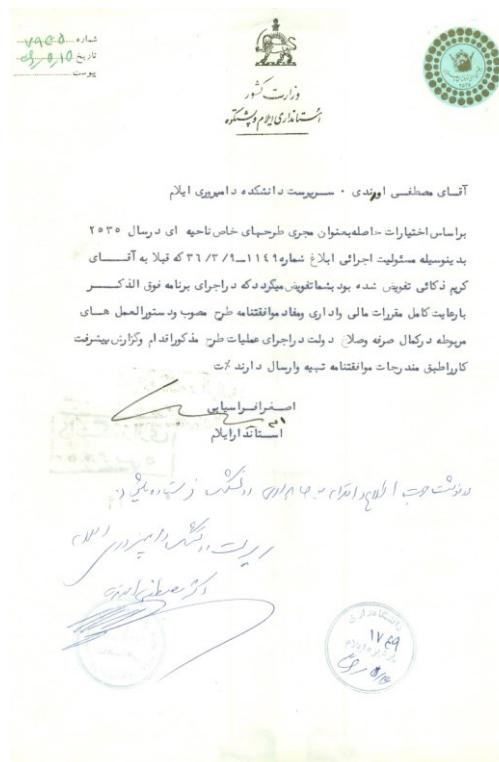 شماره ۷۹۴۵
تاریخ
پیوست
وزارت کشور
استانداری ایلام و پشتکوه
آقای مصطفی اورندی ۰ سرپرست دانشکده دامپروری ایلام
براساس اختیارات حاصله بعنوان مجری طرحهای خاص ناحیه ای در سال ۲۵۳۵
بدینوسیله مسئولیت اجرائی ابلاغ شماره ۱۱۴۹ــ۳۶/۳/۹ که قبلا به آقای
کریم ذکائی تفویض شده بود بشما تفویض میگردد که در اجرای برنامه فوق الذکر
با رعایت کامل مقررات مالی و اداری و مفاد موافقتنامه طرح مصوب و دستورالعمل های
مربوطه در کمال صرفه و صلاح دولت در اجرای عملیات طرح مذکور اقدام و گزارش پیشرفت
کار را طبق مندرجات موافقتنامه تهیه و ارسال دارند ٪ت
اصغر افراسیابی
استاندار ایلام
رونوشت جهت اطلاع و اقدام به دانشکده فرستاده میشود.
سرپرست دانشکده دامپروری ایلام
دکتر مصطفی اورندی
۱۷۴۹